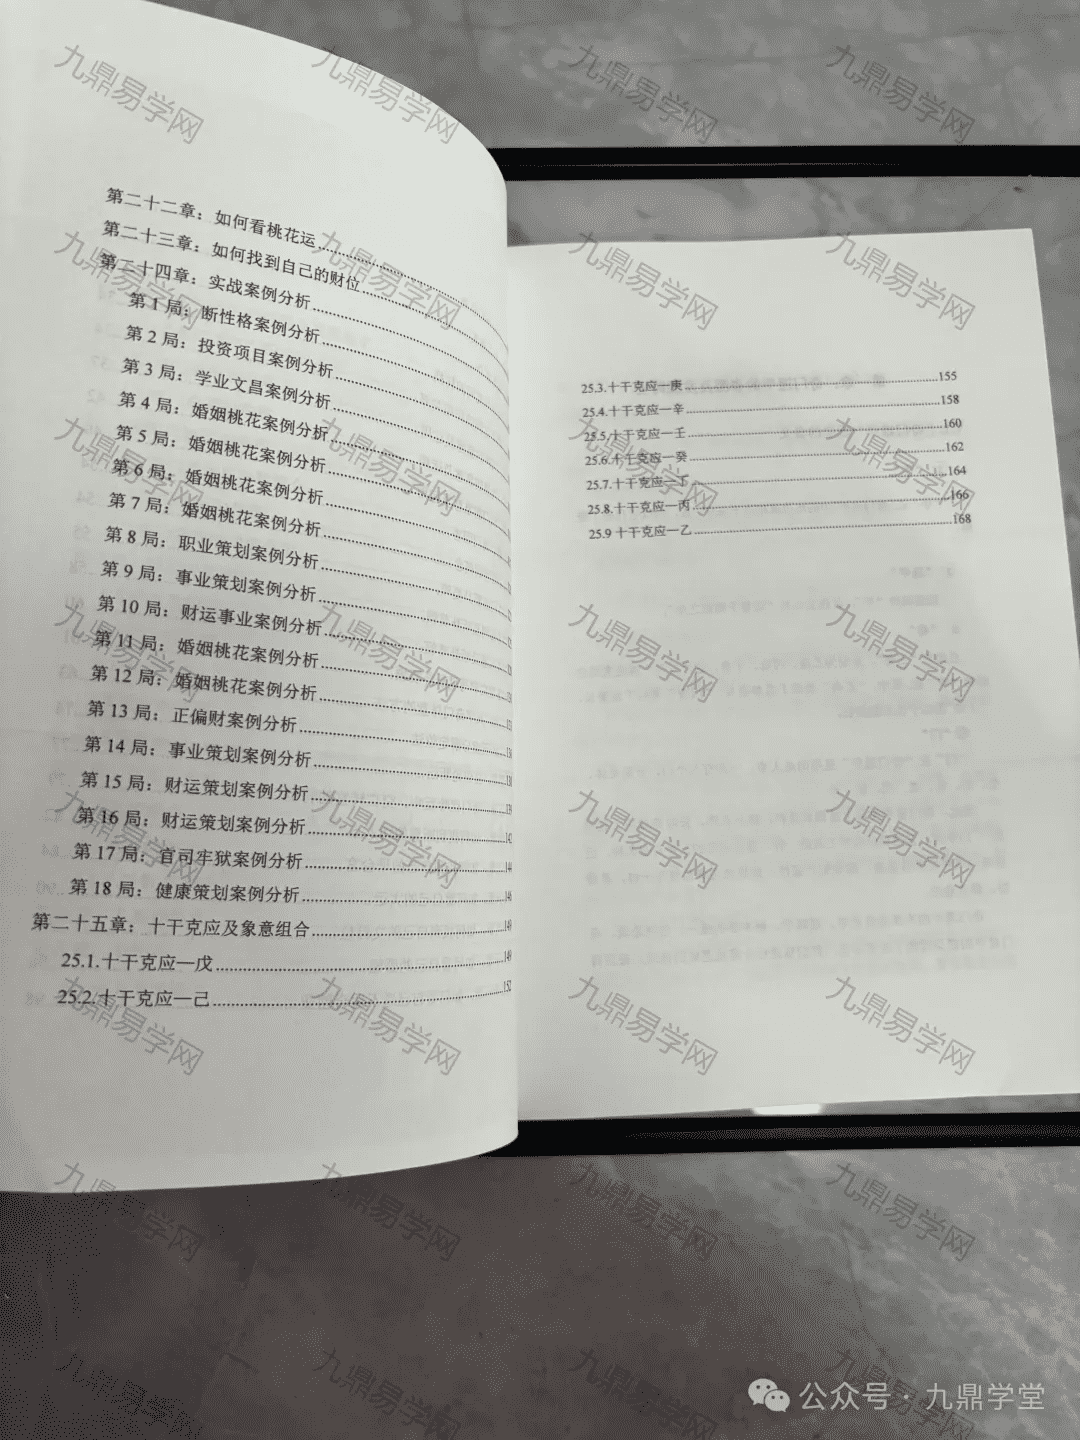 第二十二章：如何看桃花运
第二十三章：如何找到自己的财位
第二十四章：实战案例分析
第 1 局：断性格案例分析
第 2 局：投资项目案例分析
第 3 局：学业文昌案例分析
第 4 局：婚姻桃花案例分析
第 5 局：婚姻桃花案例分析
第 6 局：婚姻桃花案例分析
第 7 局：婚姻桃花案例分析
第 8 局：职业策划案例分析
第 9 局：事业策划案例分析
第 10 局：财运事业案例分析
第 11 局：婚姻桃花案例分析
第 12 局：婚姻桃花案例分析
第 13 局：正偏财案例分析
第 14 局：事业策划案例分析
第 15 局：财运策划案例分析
第 16 局：财运策划案例分析
第 17 局：官司牢狱案例分析
第 18 局：健康策划案例分析
第二十五章：十干克应及象意组合
25.1.十干克应—戊
25.2.十干克应—己 152
25.3.十干克应—庚 155
25.4.十干克应—辛 158
25.5.十干克应—壬 160
25.6.十干克应—癸 162
25.7.十干克应—丁 164
25.8.十干克应—丙 166
25.9 十干克应—乙 168
九鼎易学网
公众号 · 九鼎学堂